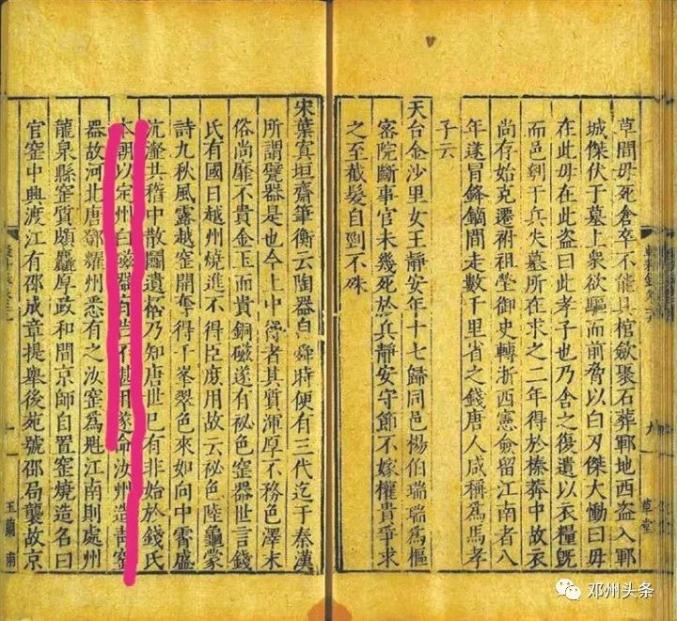 草間母死倉卒不能具棺斂聚石葬鄆地西盜入鄆
城傑伏于墓上衆欲驅而前脅以白刃傑大慟曰母
在此母在此盜曰此孝子也乃舍之復遺以衣糧旣
而邑剏于兵失墓所在求之二年得於榛莽中故衣
尚存始克遷祔祖塋御史轉浙西憲僉留江南者八
年遂冒鋒鏑間走數千里省之錢唐人咸稱爲馬孝
子云
天台金沙里女王靜安年十七歸同邑楊伯瑞瑞爲樞
密院斷事官未幾死於兵靜安守節不嫁權貴爭求
之至截髮自剄不殊
草堂
宋葉寘垣齋筆衡云陶器自舜時便有三代迄于秦漢
所謂甓器是也今土中得者其質渾厚不務色澤末
俗尚靡不貴金玉而貴銅磁遂有秘色窰器世言錢
氏有國日越州燒進不得臣庶用故云秘色陸龜蒙
詩九秋風露越窰開奪得千峯翠色來如向中霄盛
沆瀣共稽中散鬭遺杯乃知唐世已有非始於錢氏
本朝以定州白甆器有芒不堪用遂命汝州造青窰
器故河北唐鄧耀州悉有之汝窰爲魁江南則處州
龍泉縣窰質頗麤厚政和間京師自置窰燒造名曰
官窰中興渡江有邵成章提舉後苑號邵局襲故京
玉蘭
邓州头条